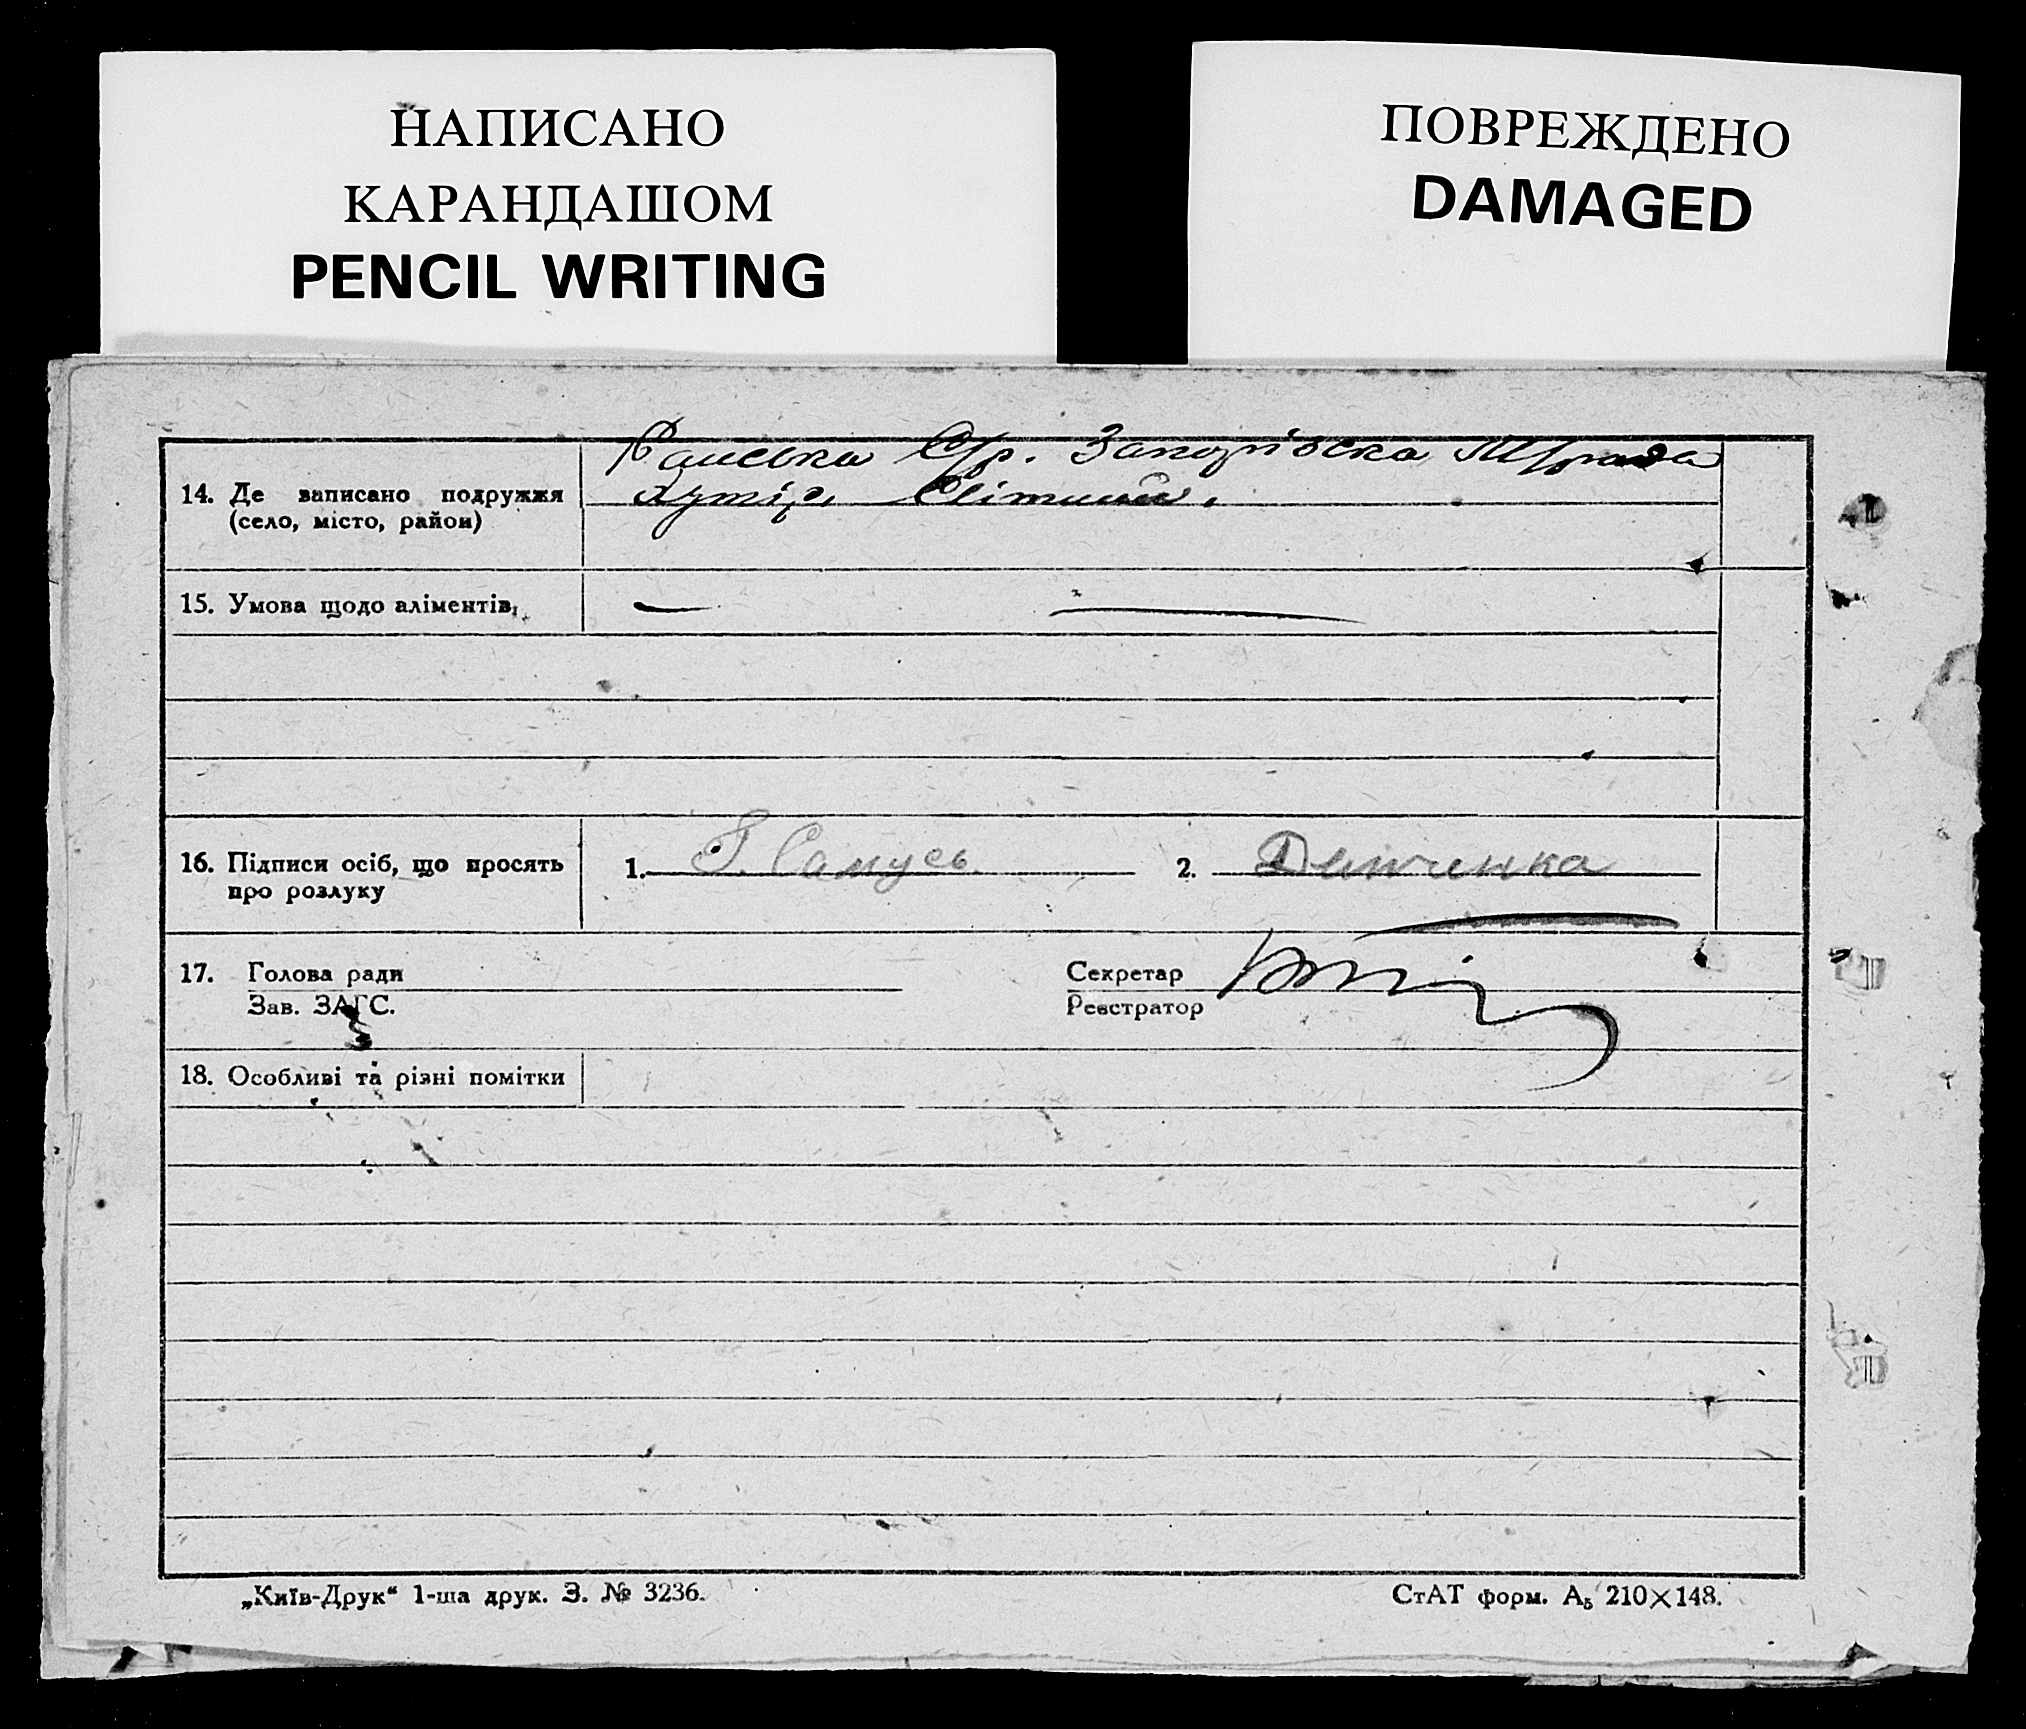 НАПИСАНО
КАРАНДАШОМ
PENCIL WRITING
ПОВРЕЖДЕНО
DAMAGED
С/р. Запорізска М/рада
14. Де записано подружжя
хутір.
(село, місто, район)
15. Умова щодо аліментів,
16. Підписи осіб, що просять
про розлуку
1. Г. Самусь.
2.
17. Голова ради
Зав. ЗАГС.
Секретар
Реєстратор
18. Особливі та різні помітки
„Київ-Друк“ 1-ша друк. З. № 3236.
СтАТ форм. А₅ 210×148.